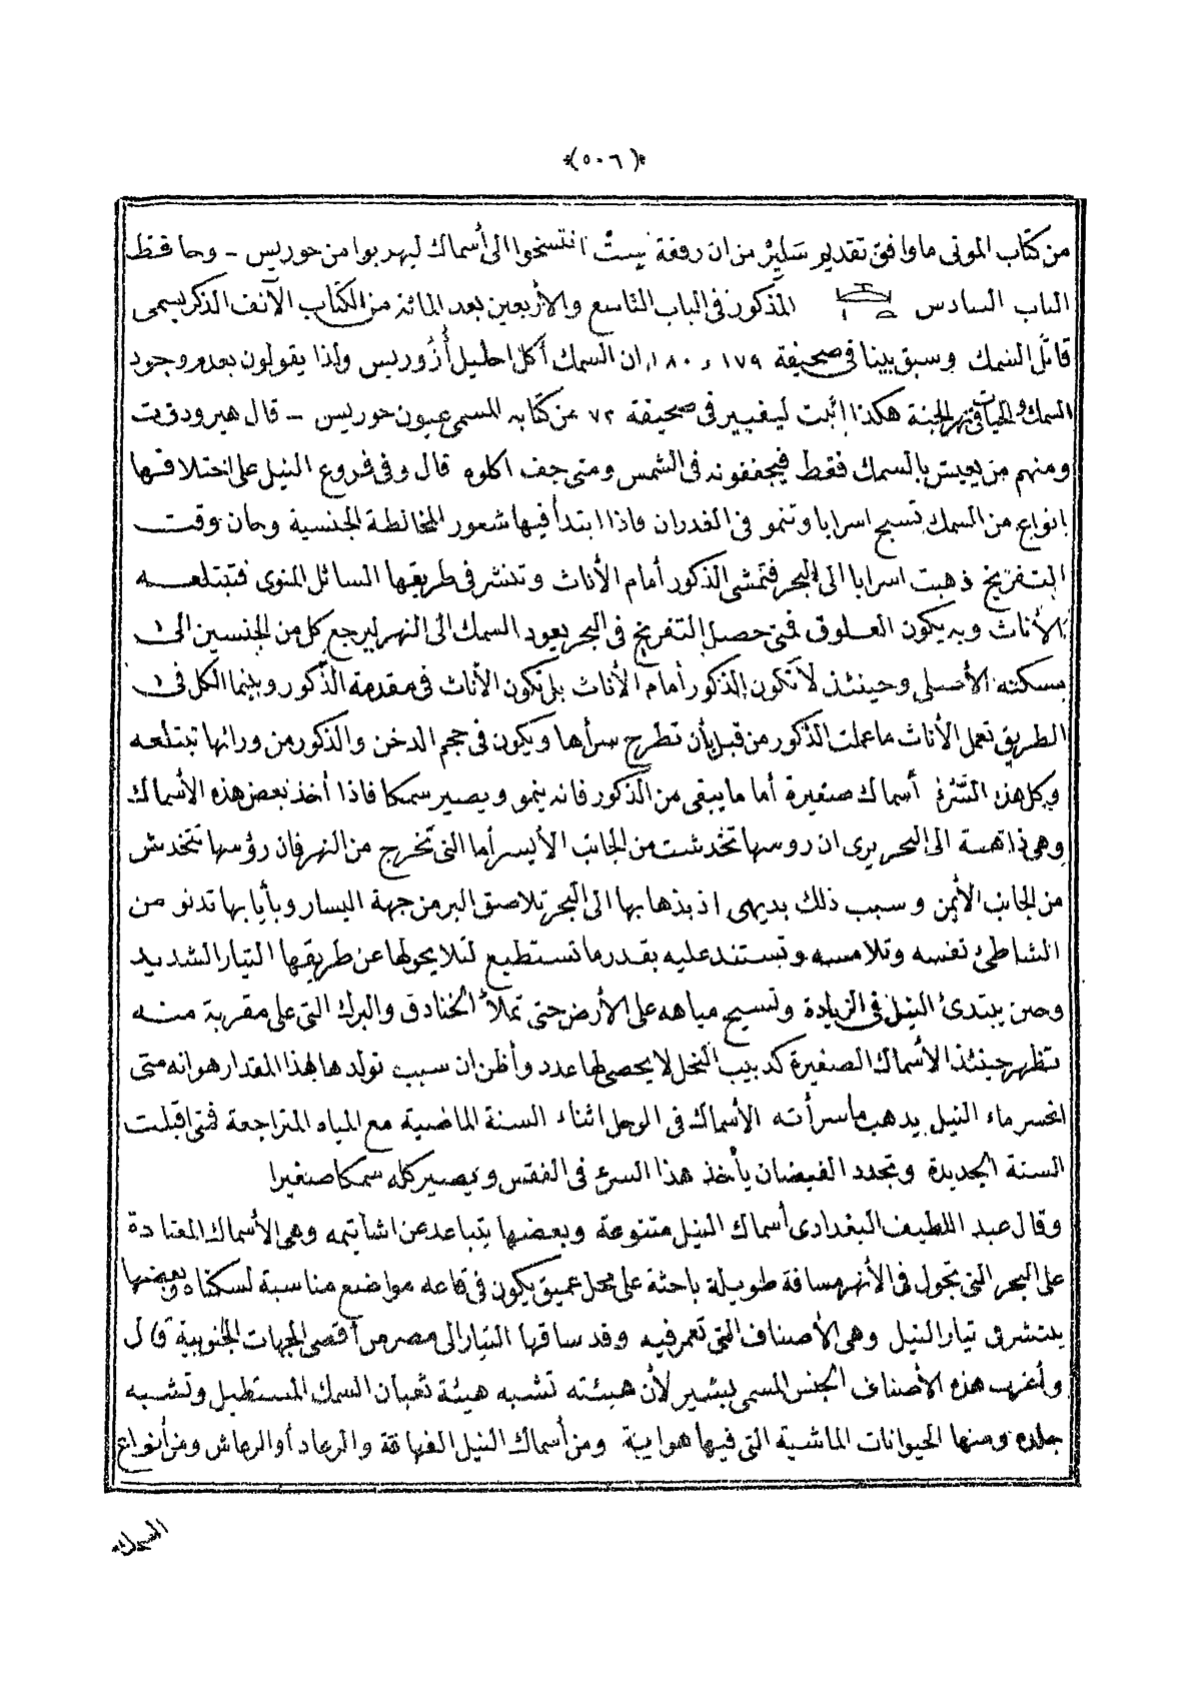 ﴿٥٠٦﴾
من كتاب الموتى ما وافق تقديم سَليِرْ من ان رفقة سِتْ انتسخوا الى أسماك ليهربوا من حوريس – وحافظ
الباب السادس المذكور فى الباب التاسع والأربعين بعد المائة من الكتاب الآنف الذكر يسمى
قاتل السمك وسبق بينا فى صحيفة ١٧٩ و ١٨٠ ان السمك أكل احليل أُزُوريس ولذا يقولون بعدم وجود
السمك والحيات فى نهر الجنة هكذا اثبت ليفيير فى صحيفة ٧٢ من كتابه المسمى عيون حوريس – قال هيرودوت
ومنهم من يعيش بالسمك فقط فيجففونه فى الشمس ومتى جف اكلوه قال وفى فروع النيل على اختلافها
انواع من السمك تسبح اسرابا وتنمو فى الغدران فاذا ابتدأ فيها شعور المخالطة الجنسية وحان وقت
التفريخ ذهبت اسرابا الى البحر فتمشى الذكور أمام الأناث وتنشر فى طريقها السائل المنوى فتبتلعه
الأناث وبه يكون العلوق فمتى حصل التفريخ فى البحر يعود السمك الى النهر ليرجع كل من الجنسين الى
مسكنه الأصلى وحينئذ لا تكون الذكور أمام الأناث بل تكون الأناث فى مقدمة الذكور وبينما الكل فى
الطريق تعمل الأناث ما عملت الذكور من قبل بأن تطرح سرأها ويكون فى حجم الدخن والذكور من ورائها تبتلعه
وكل هذا السَّرْءُ أسماك صغيرة أما ما يبقى من الذكور فانه ينمو ويصير سمكا فاذا أخذ بعض هذه الأسماك
وهى ذاهبة الى البحر يرى ان روسها تخدشت من الجانب الأيسر أما التى تخرج من النهر فان رؤسها تتخدش
من الجانب الأيمن وسبب ذلك بديهى اذ بذهابها الى البحر تلاصق البر من جهة اليسار وبأيابها تدنو من
الشاطئ نفسه وتلامسه وتستند عليه بقدر ما تستطيع لئلا يحولها عن طريقها التيار الشديد
وحين يبتدئ النيل فى الزيادة وتسيح مياهه على الأرض حتى تملأ الخنادق والبرك التى على مقربة منه
تظهر حينئذ الأسماك الصغيرة كدبيب النحل لا يحصى لها عدد وأظن ان سبب تولدها بهذا المقدار هو انه متى
انحسر ماء النيل يدهب ما سرأته الأسماك فى الوحل اثناء السنة الماضية مع المياه المتراجعة فمتى اقبلت
السنة الجديدة وتجدد الفيضان يأخذ هذا السرء فى الفقس ويصير كله سمكا صغيرا
وقال عبد اللطيف البغدادى أسماك النيل متنوعة وبعضها يتباعد عن اشاتيمه وهى الأسماك المعتادة
على البحر التى تجول فى الأنهر مسافة طويلة باحثة على محل عميق يكون فى قاعه مواضع مناسبة لسكناه وبعضها
ينتشر فى تيار النيل وهى الأصناف التى تعمر فيه وقد ساقها التيار الى مصر من أقصى الجهات الجنوبية قال
وأغرب هذه الأصناف الجنس المسمى ببشير لأن هيئته تشبه هيئة ثعبان السمك المستطيل وتشبه
جلده ومنها الحيوانات الماشية التى فيها هوايية ومن أسماك النيل الفهاقة والرعاد أو الرعاش ومن أنواع
السمك